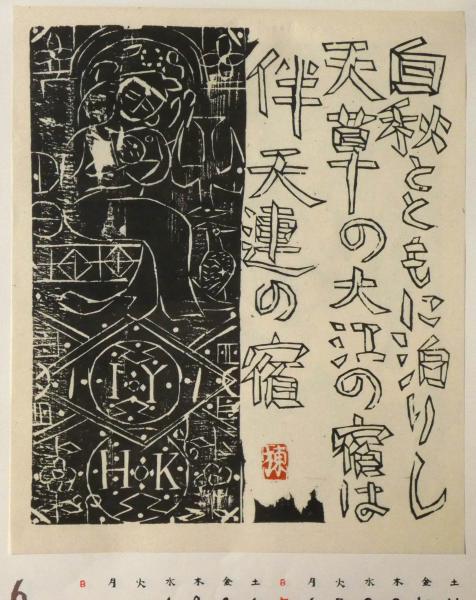 白秋とともに泊りし
天草の大江の宿は
伴天連の宿
I Y
H K
棟
6
日 月 火 水 木 金 土 日 月 火 水 木 金 土